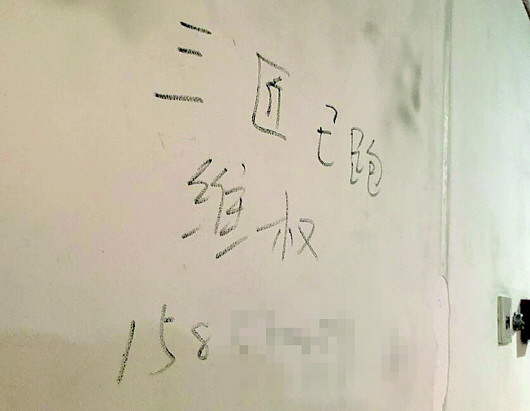 三匠已跑
维权
158